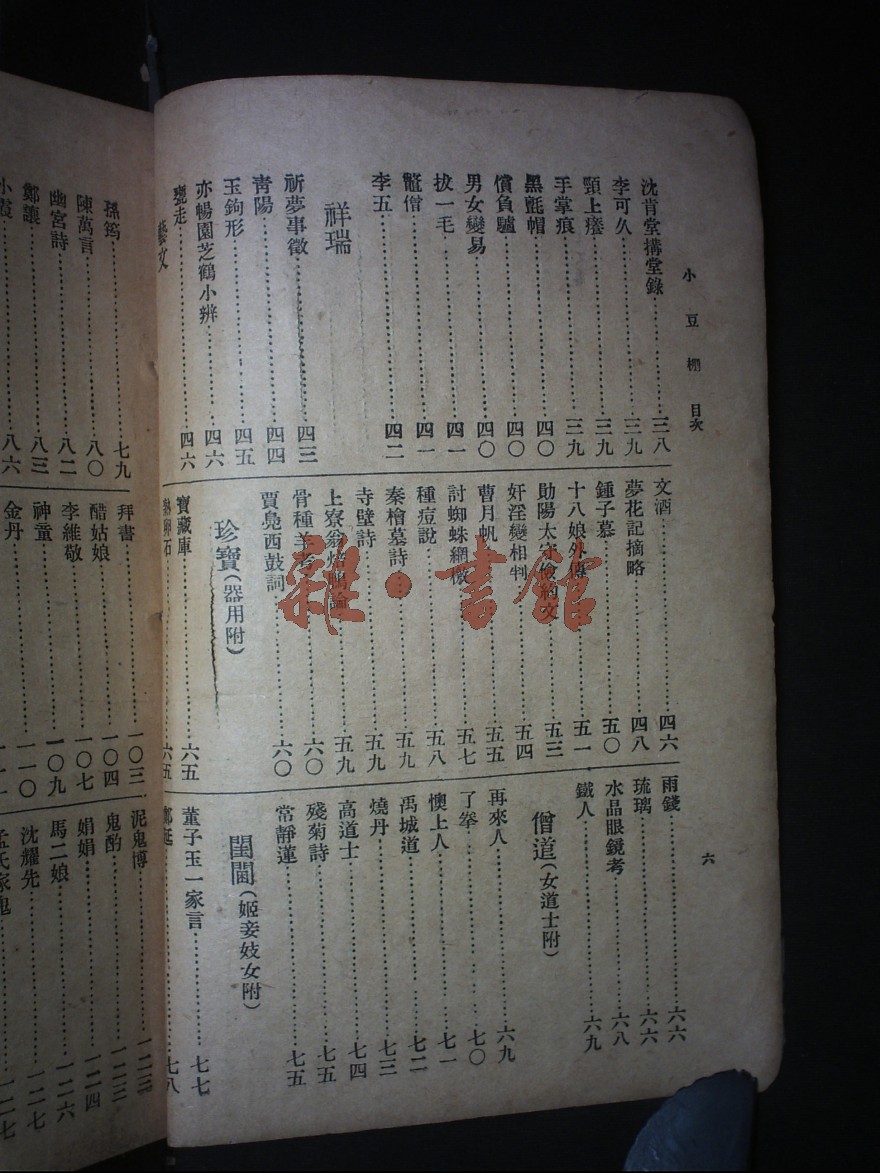 小豆棚 目次
六
沈肯堂搆堂錄 三八
李可久 三九
頸上癢 三九
手掌痕 三九
黑氈帽 四〇
償負驢 四〇
男女變易 四〇
拔一毛 四一
鼈僧 四一
李五 四二
祥瑞
祈夢事徵 四三
青陽 四四
玉鉤形 四五
亦暢園芝鶴小辨 四六
甕走 四六
藝文
文酒 四六
夢花記摘略 四八
鍾子慕 五〇
十八娘外傳 五一
勛陽太守儉約文 五三
奸淫變相判 五四
曹月帆 五五
討蜘蛛網檄 五七
種痘說 五八
秦檜墓詩 五九
寺壁詩 五九
上寮翁焙鴨論 五九
骨種羊考 六〇
賈鳧西鼓詞 六〇
珍寶(器用附)
寶藏庫 六五
卵石 六五
雨錢 六六
琉璃 六六
水晶眼鏡考 六八
鐵人 六九
僧道(女道士附)
再來人 六九
了拳 七〇
懊上人 七一
禹城道 七二
燒丹 七三
高道士 七四
殘菊詩 七五
常靜蓮 七五
閨閫(姬妾妓女附)
董子玉一家言 七七
鄭延 七八
孫筠 七九
陳萬言 八〇
幽宮詩 八二
鄭讓 八三
小霞 八六
拜書 一〇三
醋姑娘 一〇四
李維敬 一〇七
神童 一〇九
金丹 一一〇
泥鬼博 一二三
鬼酌 一二三
娟娟 一二四
馬二娘 一二六
沈耀先 一二七
孟氏家鬼 一二七
雜·書館